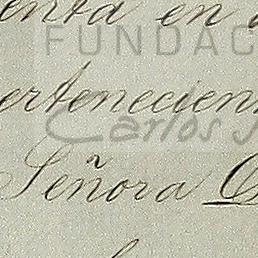 enta en
FUNDAC
ertenecien
Carlos
Señora